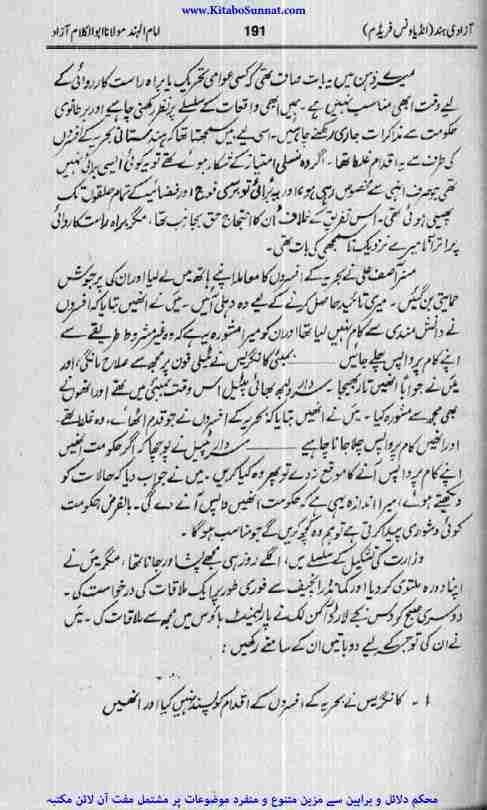 www.KitaboSunnat.com
آزادی ہند (انڈیا ونس فریڈم) 191 امام الہند مولانا ابوالکلام آزاد
میرے ذہن میں یہ بات صاف تھی کہ کسی عوامی تحریک یا براہ راست کارروائی کے
لیے وقت ابھی مناسب نہیں ہے۔ ہمیں ابھی واقعات کے سلسلے پر نظر رکھنی چاہیے اور برطانوی
حکومت سے مذاکرات جاری رکھنے چاہئیں۔ اسی لیے میں سمجھتا تھا کہ ہندستانی بحریہ کے افسروں
کی طرف سے یہ اقدام غلط تھا۔ اگر وہ نسلی امتیاز کے شکار ہوئے تھے تو یہ کوئی ایسی برائی نہیں
تھی جو صرف انہی سے مخصوص رہی ہو، اور یہ برائی تو بری فوج اور فضائیہ کے تمام حلقوں تک
پھیلی ہوئی تھی۔ اس تفریق کے خلاف اُن کا احتجاج حق بجانب تھا، مگر براہ راست کاروائی
پر اتر آنا میرے نزدیک ناسمجھی کی بات تھی۔
مسز آصف علی نے بحریہ کے افسروں کا معاملہ اپنے ہاتھ میں لے لیا اور ان کی پرجوش
حمایتی بن گئیں۔ میری تائید حاصل کرنے کے لیے وہ دہلی آئیں۔ میں نے انھیں بتایا کہ افسروں
نے دانش مندی سے کام نہیں لیا تھا اور ان کو میرا مشورہ یہ ہے کہ وہ غیر مشروط طریقے سے
اپنے کام پر واپس چلے جائیں ـــــ بمبئی کانگریس نے ٹیلی فون پر مجھ سے صلاح مانگی، اور
میں نے جواباً انھیں تار بھیجا۔ سردار ولبھ بھائی پٹیل اس وقت بمبئی میں تھے اور انھوں نے
بھی مجھ سے مشورہ کیا۔ میں نے انھیں بتایا کہ بحریہ کے افسروں نے جو قدم اٹھائے، وہ غلط تھے
اور انھیں کام پر واپس چلا جانا چاہیے ـــــ سردار پٹیل نے پوچھا کہ اگر حکومت انھیں
اپنے کام پر واپس آنے کا موقع نہ دے تو پھر وہ کیا کریں۔ میں نے جواب دیا کہ حالات کو
دیکھتے ہوئے، میرا اندازہ یہی ہے کہ حکومت انھیں واپس آنے دے گی۔ بالفرض حکومت
کوئی دشواری پیدا کرتی ہے تو ہم وہ کچھ کریں گے جو مناسب ہوگا۔
وزارت کی تشکیل کے سلسلے میں، اگلے روز ہی مجھے پشاور جانا تھا، مگر میں نے
اپنا دورہ ملتوی کر دیا اور کمانڈر انچیف سے فوری طور پر ایک ملاقات کی درخواست کی۔
دوسری صبح کو دس بجے لارڈ آکن لک نے پارلیمنٹ ہاؤس میں مجھ سے ملاقات کی۔ میں
نے ان کی توجہ کے لیے دو باتیں ان کے سامنے رکھیں :
۱۔ کانگریس نے بحریہ کے افسروں کے اقدام کو پسند نہیں کیا اور انھیں
محکم دلائل و براہین سے مزین متنوع و منفرد موضوعات پر مشتمل مفت آن لائن مکتبہ